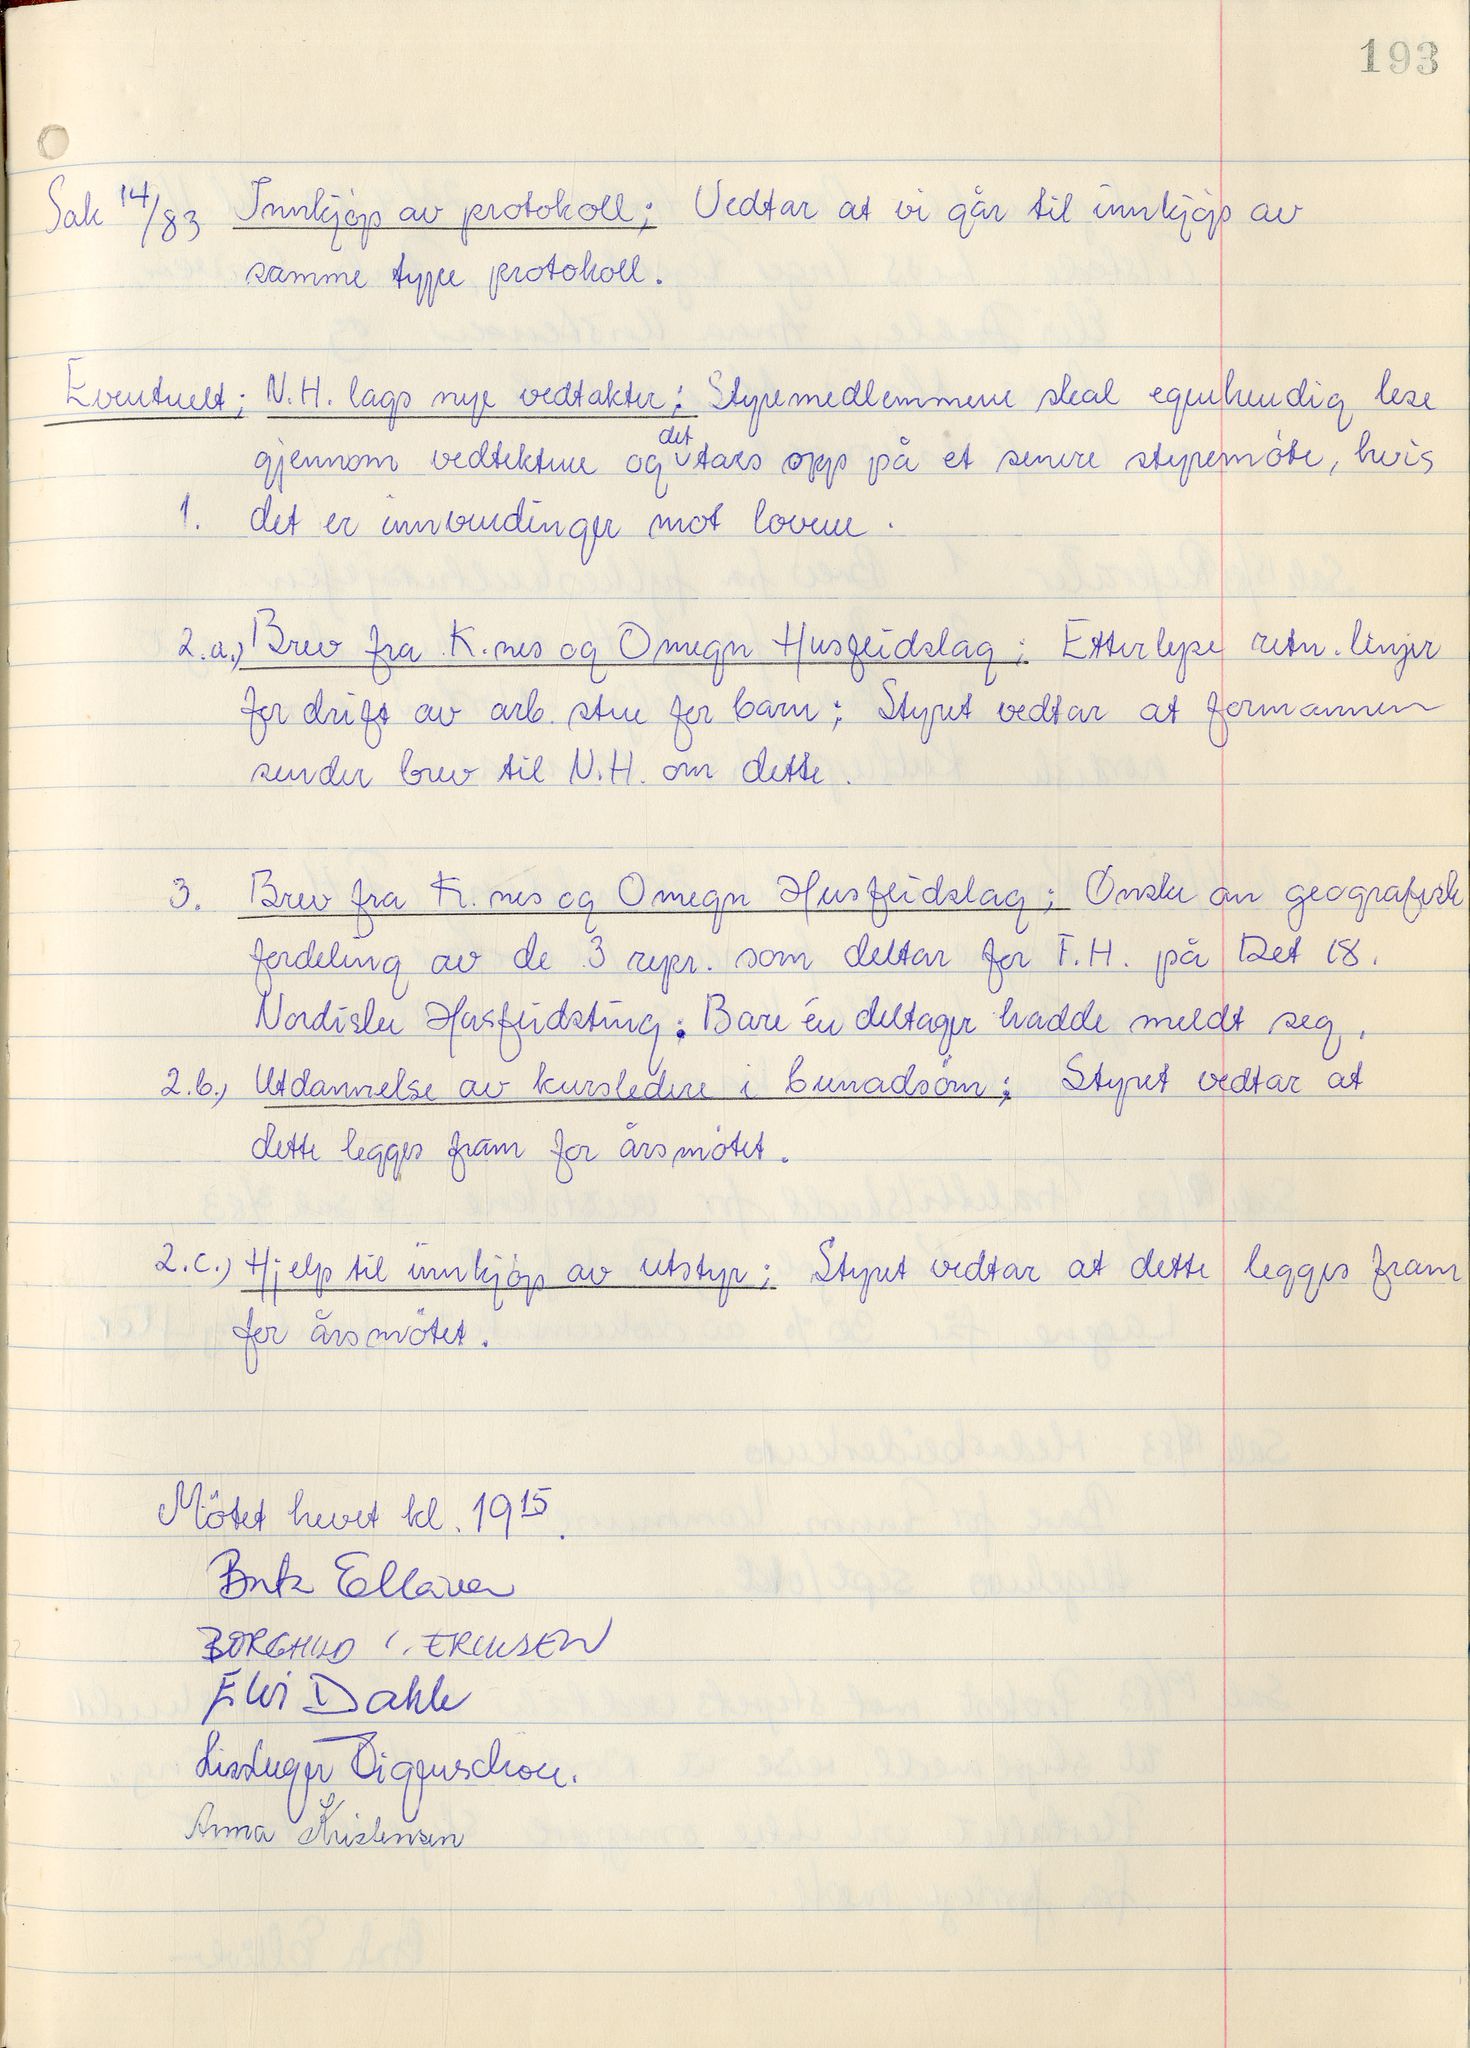 193
Sak 14/83 Innkjøp av protokoll; Vedtar at vi går til innkjøp av
samme type protokoll.
Eventuelt; N.H. lags nye vedtakter; Styremedlemmene skal egenhendig lese
gjennom vedtektene og det tars opp på et senere styremöte, hvis
1. det er innvendinger mot lovene.
2.a.) Brev fra K.nes og Omegn Husflidslag; Etterlyse retn.linjer
for drift av arb. stue for barn; Styret vedtar at formannen
sender brev til N.H. om dette.
3. Brev fra K.nes og Omegn Husflidslag; Ønske om geografisk
fordeling av de 3 repr. som deltar for F.H. på Det 18.
Nordiske Husflidsting; Bare én deltager hadde meldt seg.
2.b.) Utdannelse av kursledere i bunadsöm; Styret vedtar at
dette legges fram for årsmötet.
2.c.) Hjelp til innkjøp av utstyr; Styret vedtar at dette legges fram
for årsmötet.
Mötet hevet kl. 19 15.
Ellaven
BORGHILD ERIKSEN
Elvi Dahle
Anna Kristensen